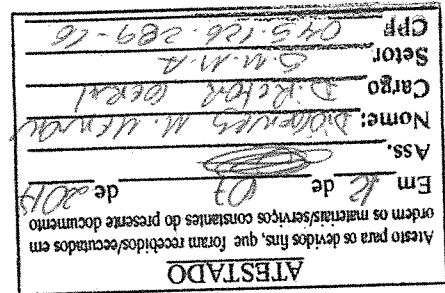 ATESTADO
Atesto para os devidos fins, que foram recebidos/executados em
ordem os materiais/serviços constantes do presente documento
Em 12 de 07 de 20
Ass.
Nome: DIÓGENES M.
Cargo DIRETOR GERAL
Setor S.M.M.A
CPF 045.126.289-16